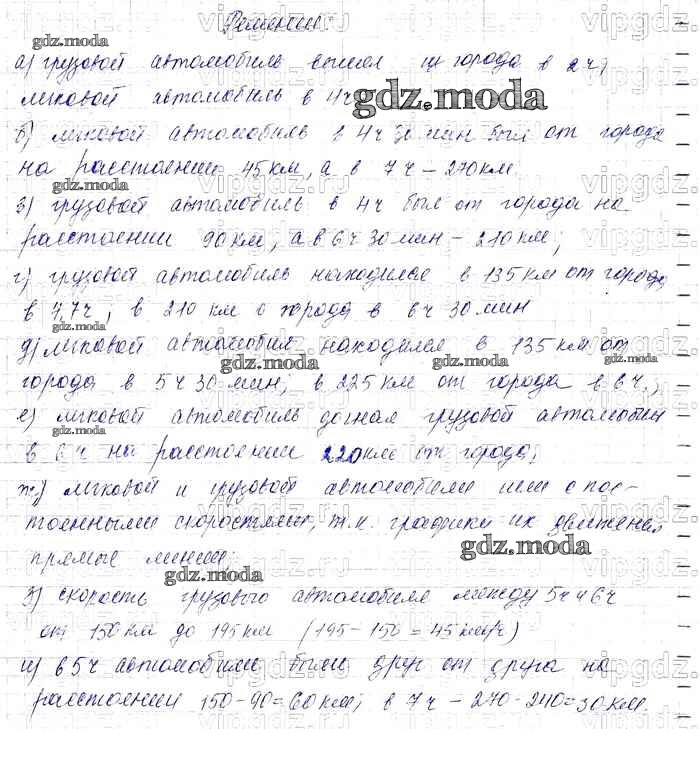 Решение:
а) грузовой автомобиль вышел из города в 2 ч,
легковой автомобиль в 4 ч
б) легковой автомобиль в 4 ч 30 мин был от города
на расстоянии 45 км, а в 7 ч - 270 км.
в) грузовой автомобиль в 4 ч был от города на
расстоянии 90 км, а в 6 ч 30 мин - 210 км;
г) грузовой автомобиль находился в 135 км от города
в 4,7 ч, в 210 км от города в 6 ч 30 мин
д) легковой автомобиль находился в 135 км от
города в 5 ч 30 мин; в 225 км от города в 6 ч.,
е) легковой автомобиль догнал грузовой автомобиль
в 6 ч на расстоянии 220 км от города;
ж) легковой и грузовой автомобили шли с пос-
тоянными скоростями, т.к. графики их движения
прямые линии,
з) скорость грузового автомобиля между 5 ч и 6 ч
от 150 км до 195 км (195 - 150 = 45 км/ч)
и) в 5 ч автомобили были друг от друга на
расстоянии 150 - 90 = 60 км; в 7 ч - 270 - 240 = 30 км.
gdz.moda
gdz.moda
gdz.moda
gdz.moda
gdz.moda
gdz.moda
gdz.moda
gdz.moda
gdz.moda
gdz.moda
vipgdz.ru